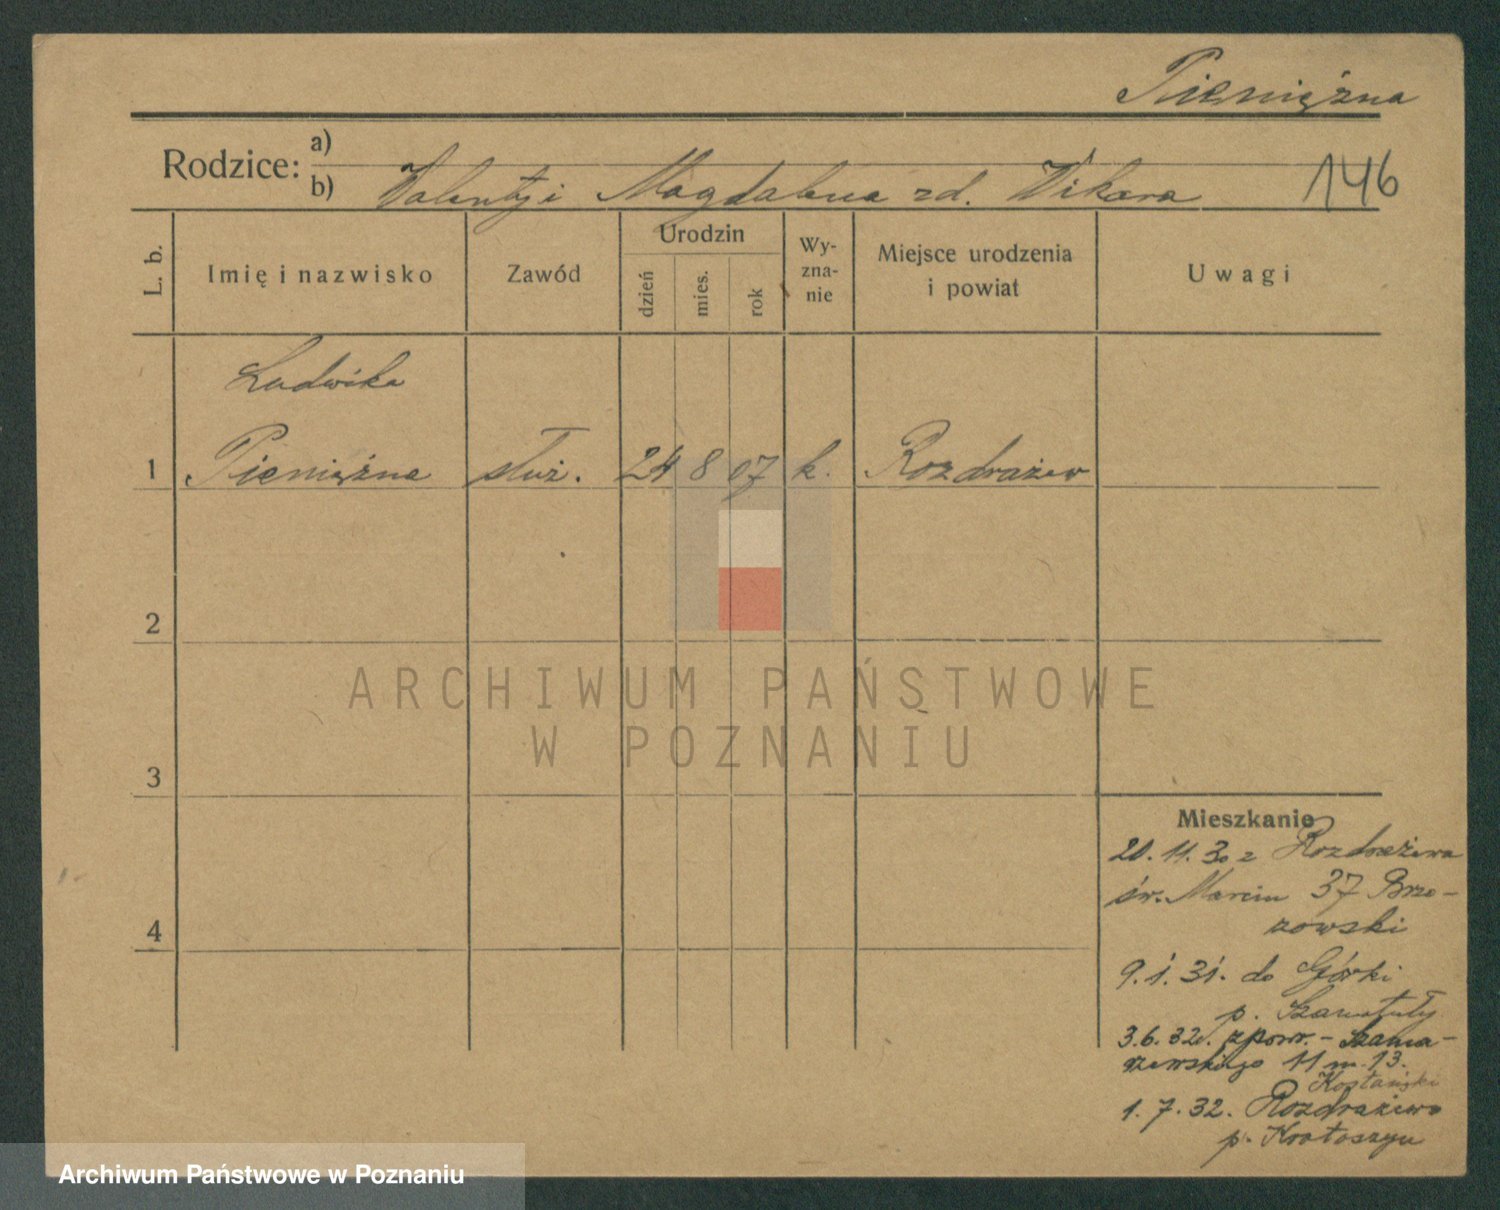 Pieniężna
Rodzice: a)
b) Walenty i Magdalena zd. Wikara
146
L. b.
Imię i nazwisko
Zawód
Urodzin
dzień
mies.
rok
Wy-
zna-
nie
Miejsce urodzenia
i powiat
Uwagi
Ludwika
1 Pieniężna służ. 24 8 07 k. Rozdrażew
2
ARCHIWUM PAŃSTWOWE
W POZNANIU
3
4
Mieszkanie
20. 11. 30 z Rozdrażewa
św. Marcin 37 Brzo-
zowski
9. 1. 31. do Górki
p. Szamotuły
3.6.32. zpowr. - Szama-
rzewskiego 11 m. 13.
Kostański
1. 7. 32. Rozdrażewo
p. Krotoszyn
Archiwum Państwowe w Poznaniu